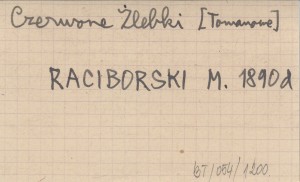 Czerwone Żlebki [Tomanowe]
RACIBORSKI M. 1890d
bT/054/1200